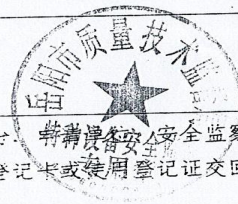 岳阳市质量技术监
特种设备安全
专用
安全监察
登记卡或使用登记证交回